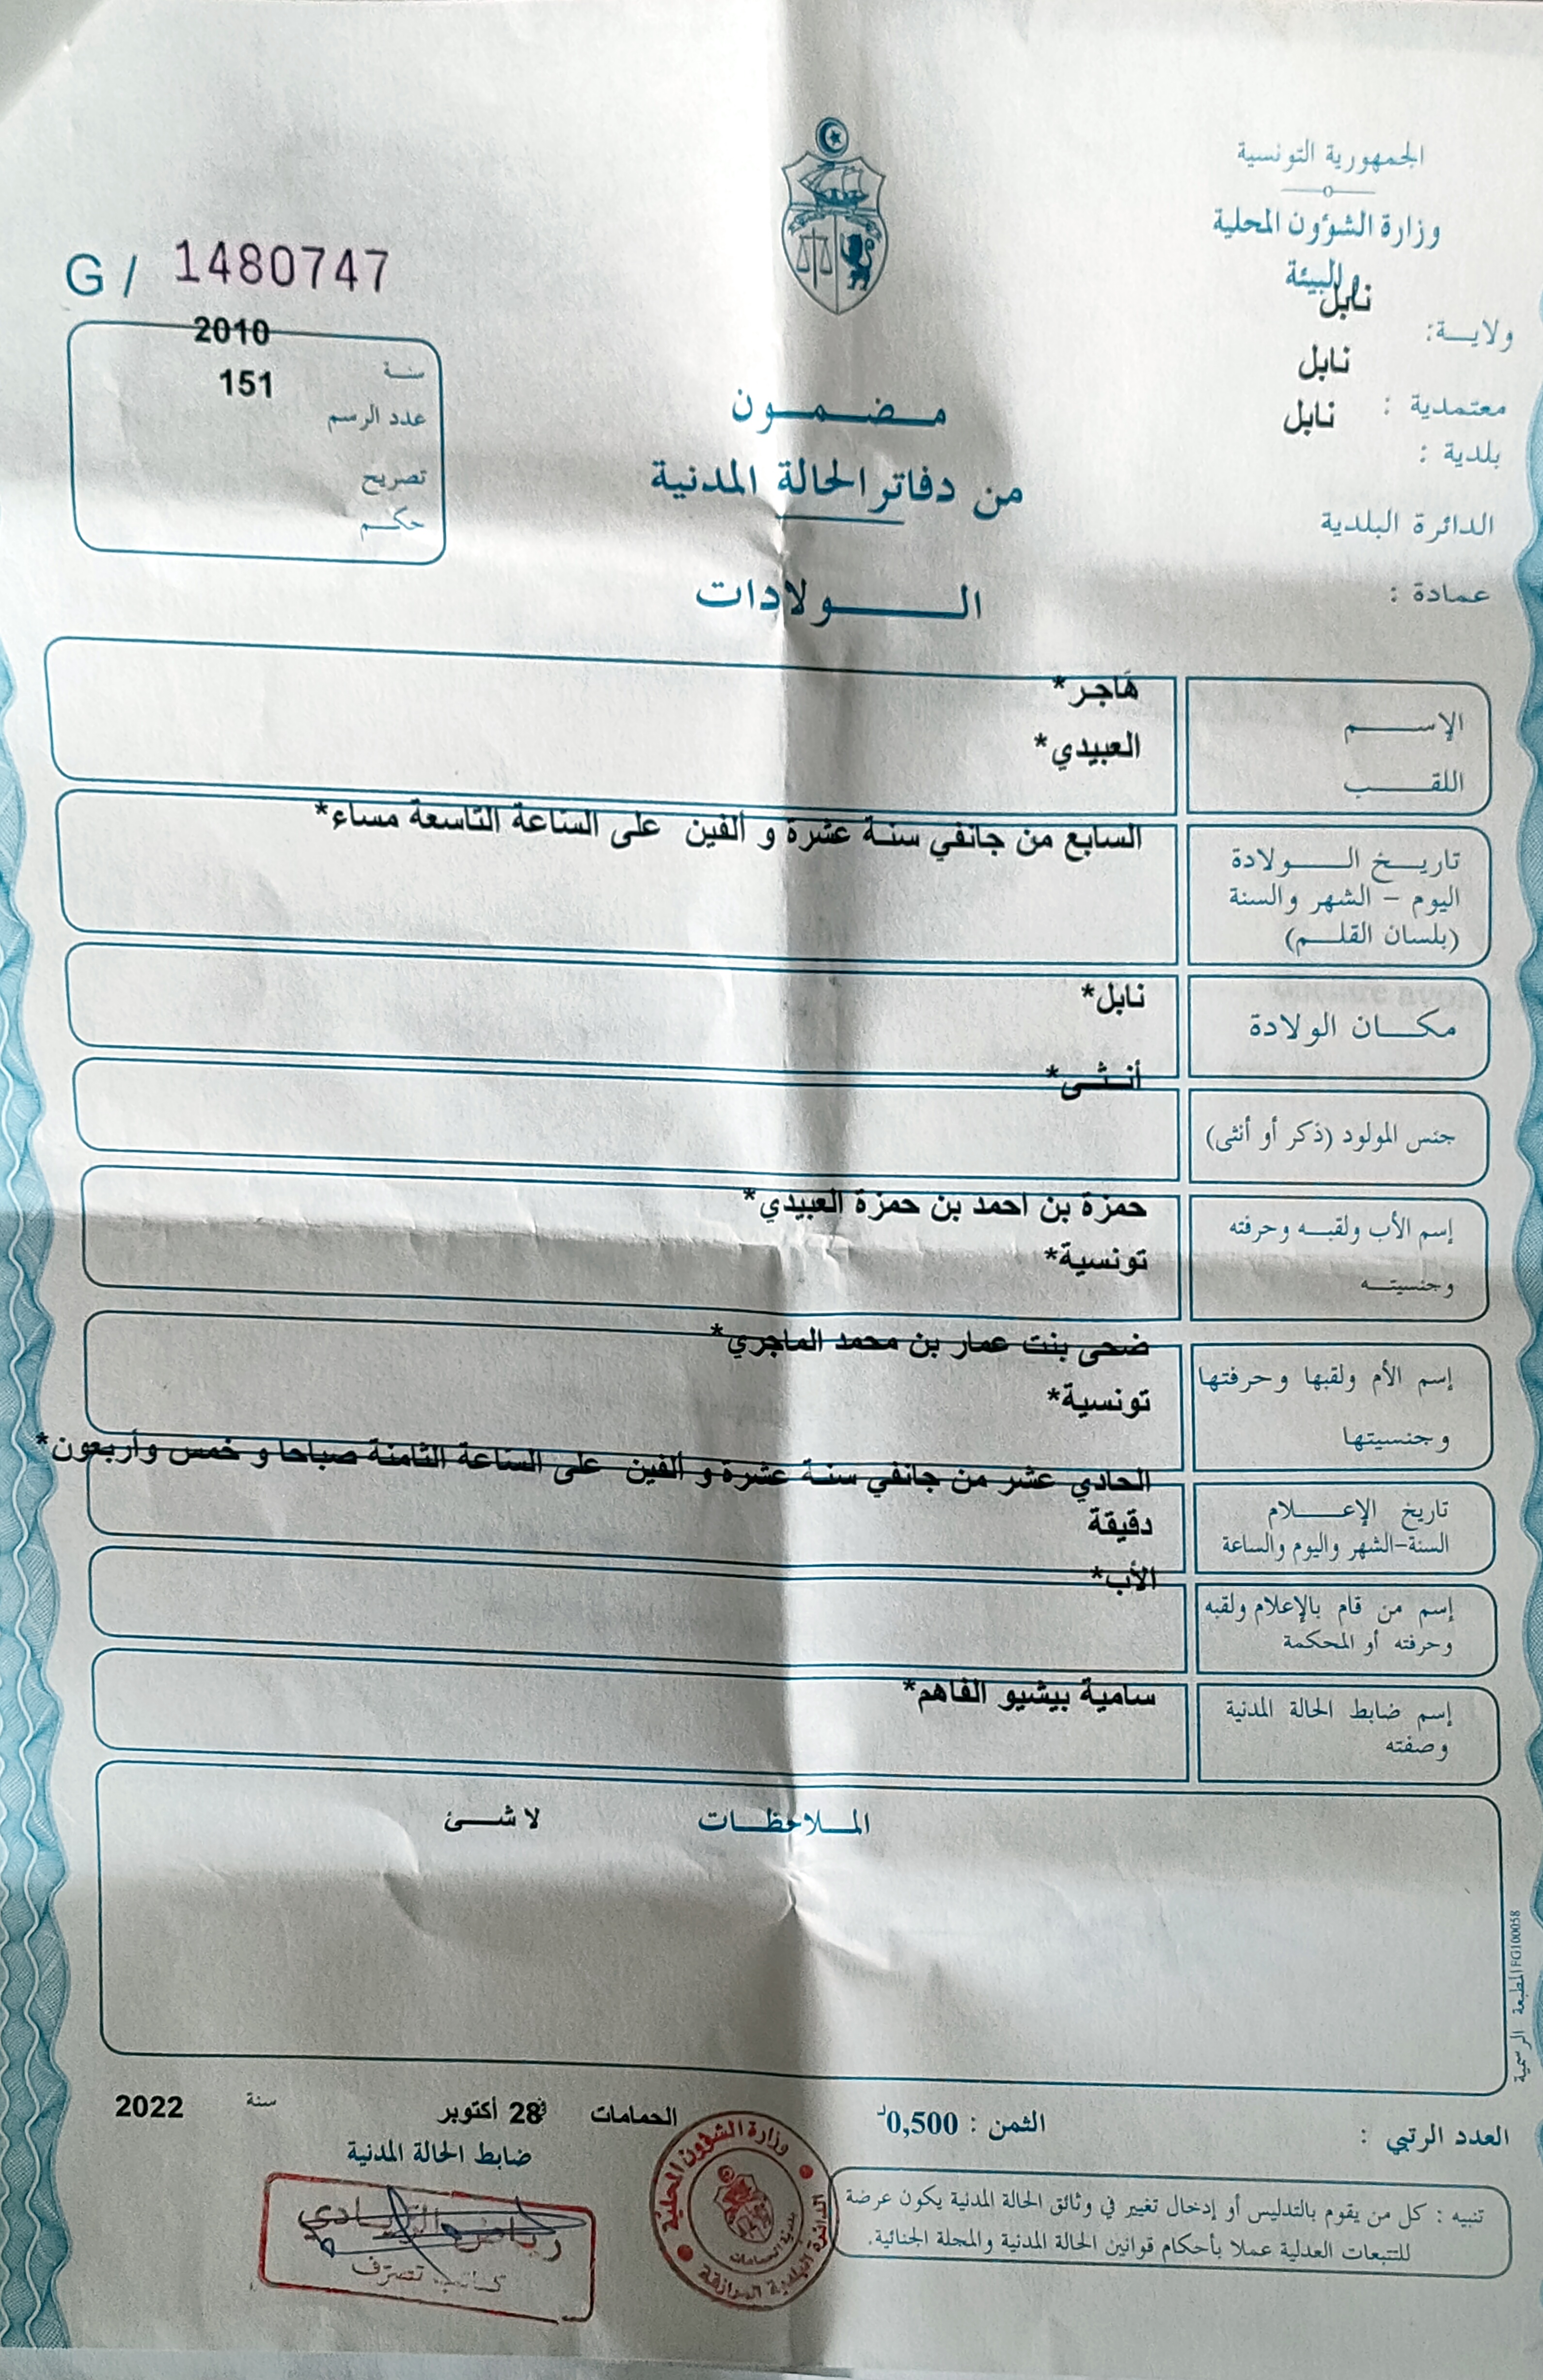 الجمهورية التونسية
وزارة الشؤون المحلية
والبيئة
ولايـــة: نابل
معتمدية : نابل
بلدية : نابل
الدائرة البلدية
عمادة :
G / 1480747
سنـة 2010
عدد الرسم 151
تصريح
حكـم
مـضـمـون
من دفاتر الحالة المدنية
الـولادات
الإســـم هَاجـر*
اللقــب العبيدي*
تاريـخ الـولادة السابع من جانفي سنـة عشرة و ألفين على السّاعة التّاسعة مساء*
اليوم – الشهر والسنة
(بلسان القلـم)
مكـان الولادة نابل*
جنس المولود (ذكر أو أنثى) أنـثـى*
إسم الأب ولقبـه وحرفته حمزة بن احمد بن حمزة العبيدي*
وجنسيتـه تونسية*
إسم الأم ولقبها وحرفتها ضحى بنت عمار بن محمد الماجري*
وجنسيتها تونسية*
تاريخ الإعـلام الحادي عشر من جانفي سنـة عشرة و ألفين على السّاعة الثّامنة صباحا و خمس وأربعون*
السنة-الشهر واليوم والساعة دقيقة
إسم من قام بالإعلام ولقبه الأب*
وحرفته أو المحكمة
إسم ضابط الحالة المدنية سامية بيشيو الفاهم*
وصفته
المـلاحظـات لا شـئ
المطبعة الرسمية FG100058
العدد الرتبي :
الثمن : 0,500د
الحمامات في 28 أكتوبر سنة 2022
ضابط الحالة المدنية
كـاتب تصرّف
وزارة الشؤون المحلية
الدائرة البلدية
بلدية الحمامات
تنبيه : كل من يقوم بالتدليس أو إدخال تغيير في وثائق الحالة المدنية يكون عرضة
للتتبعات العدلية عملا بأحكام قوانين الحالة المدنية والمجلة الجنائية.